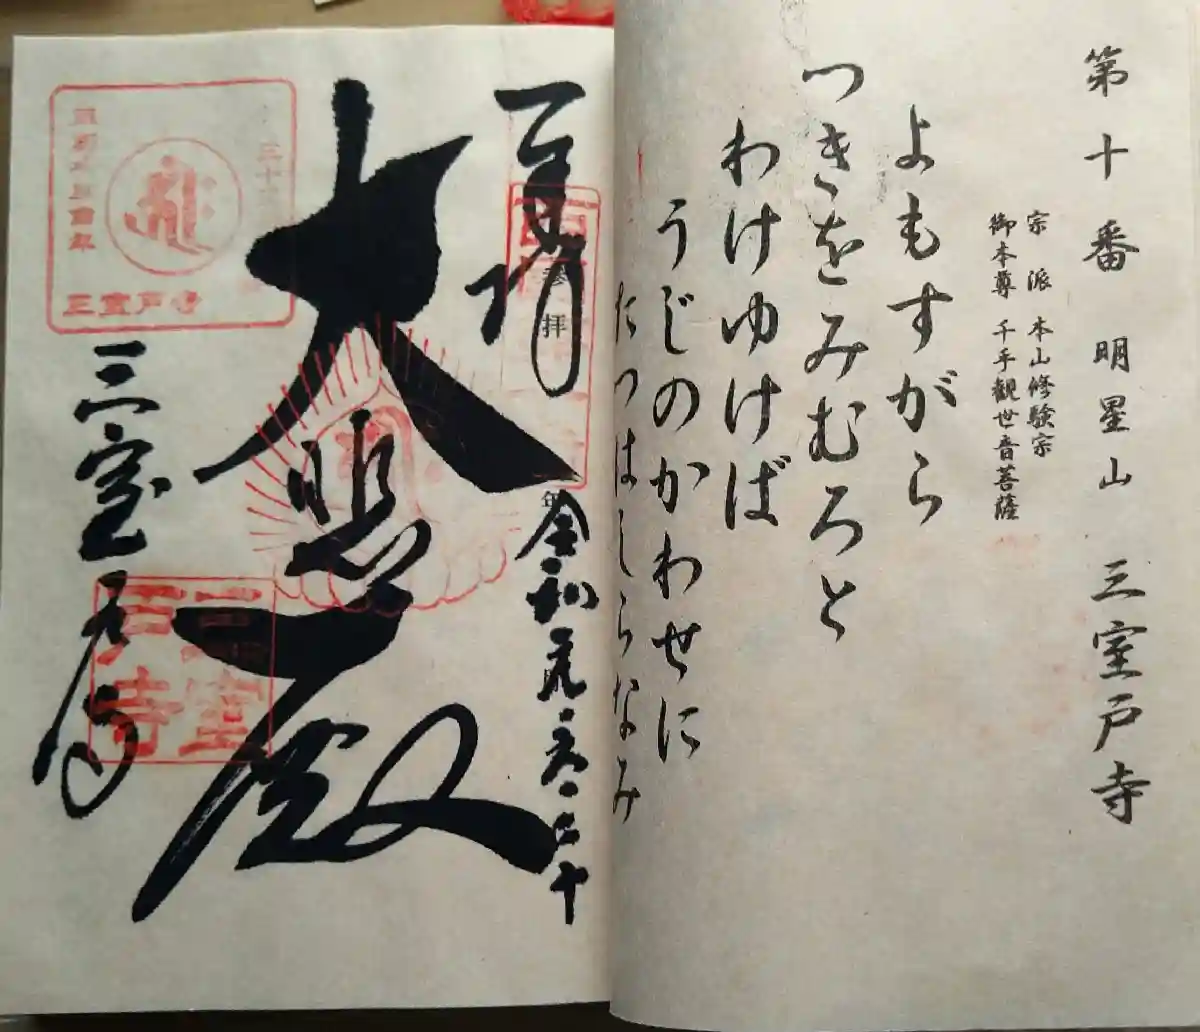 第十番 明星山 三室戸寺
宗派 本山修験宗
御本尊 千手観世音菩薩
よもすがら
つきをみむろと
わけゆけば
うじのかわせに
たつはしらなみ
奉拝
参拝
年
令和元.六.二十
大悲殿
三十三
三室戸寺
三室戸寺
三室戸寺